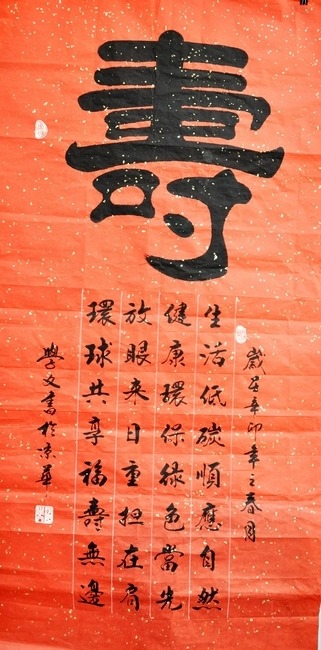 壽
歲居辛卯年之春月
生活低碳順應自然
健康環保綠色當先
放眼來日重担在肩
環球共享福壽無邊
學文書於京華